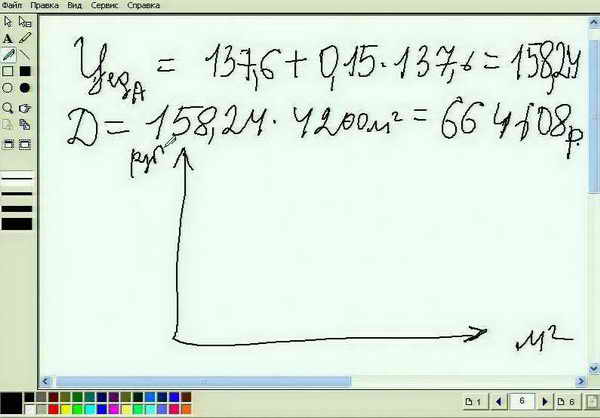 Файл Правка Вид Сервис Справка
Ц ед A = 137,6 + 0,15 · 137,6 = 158,24
Д = 158,24 · 4200 м² = 664608 р.
руб
м²
1 6 6